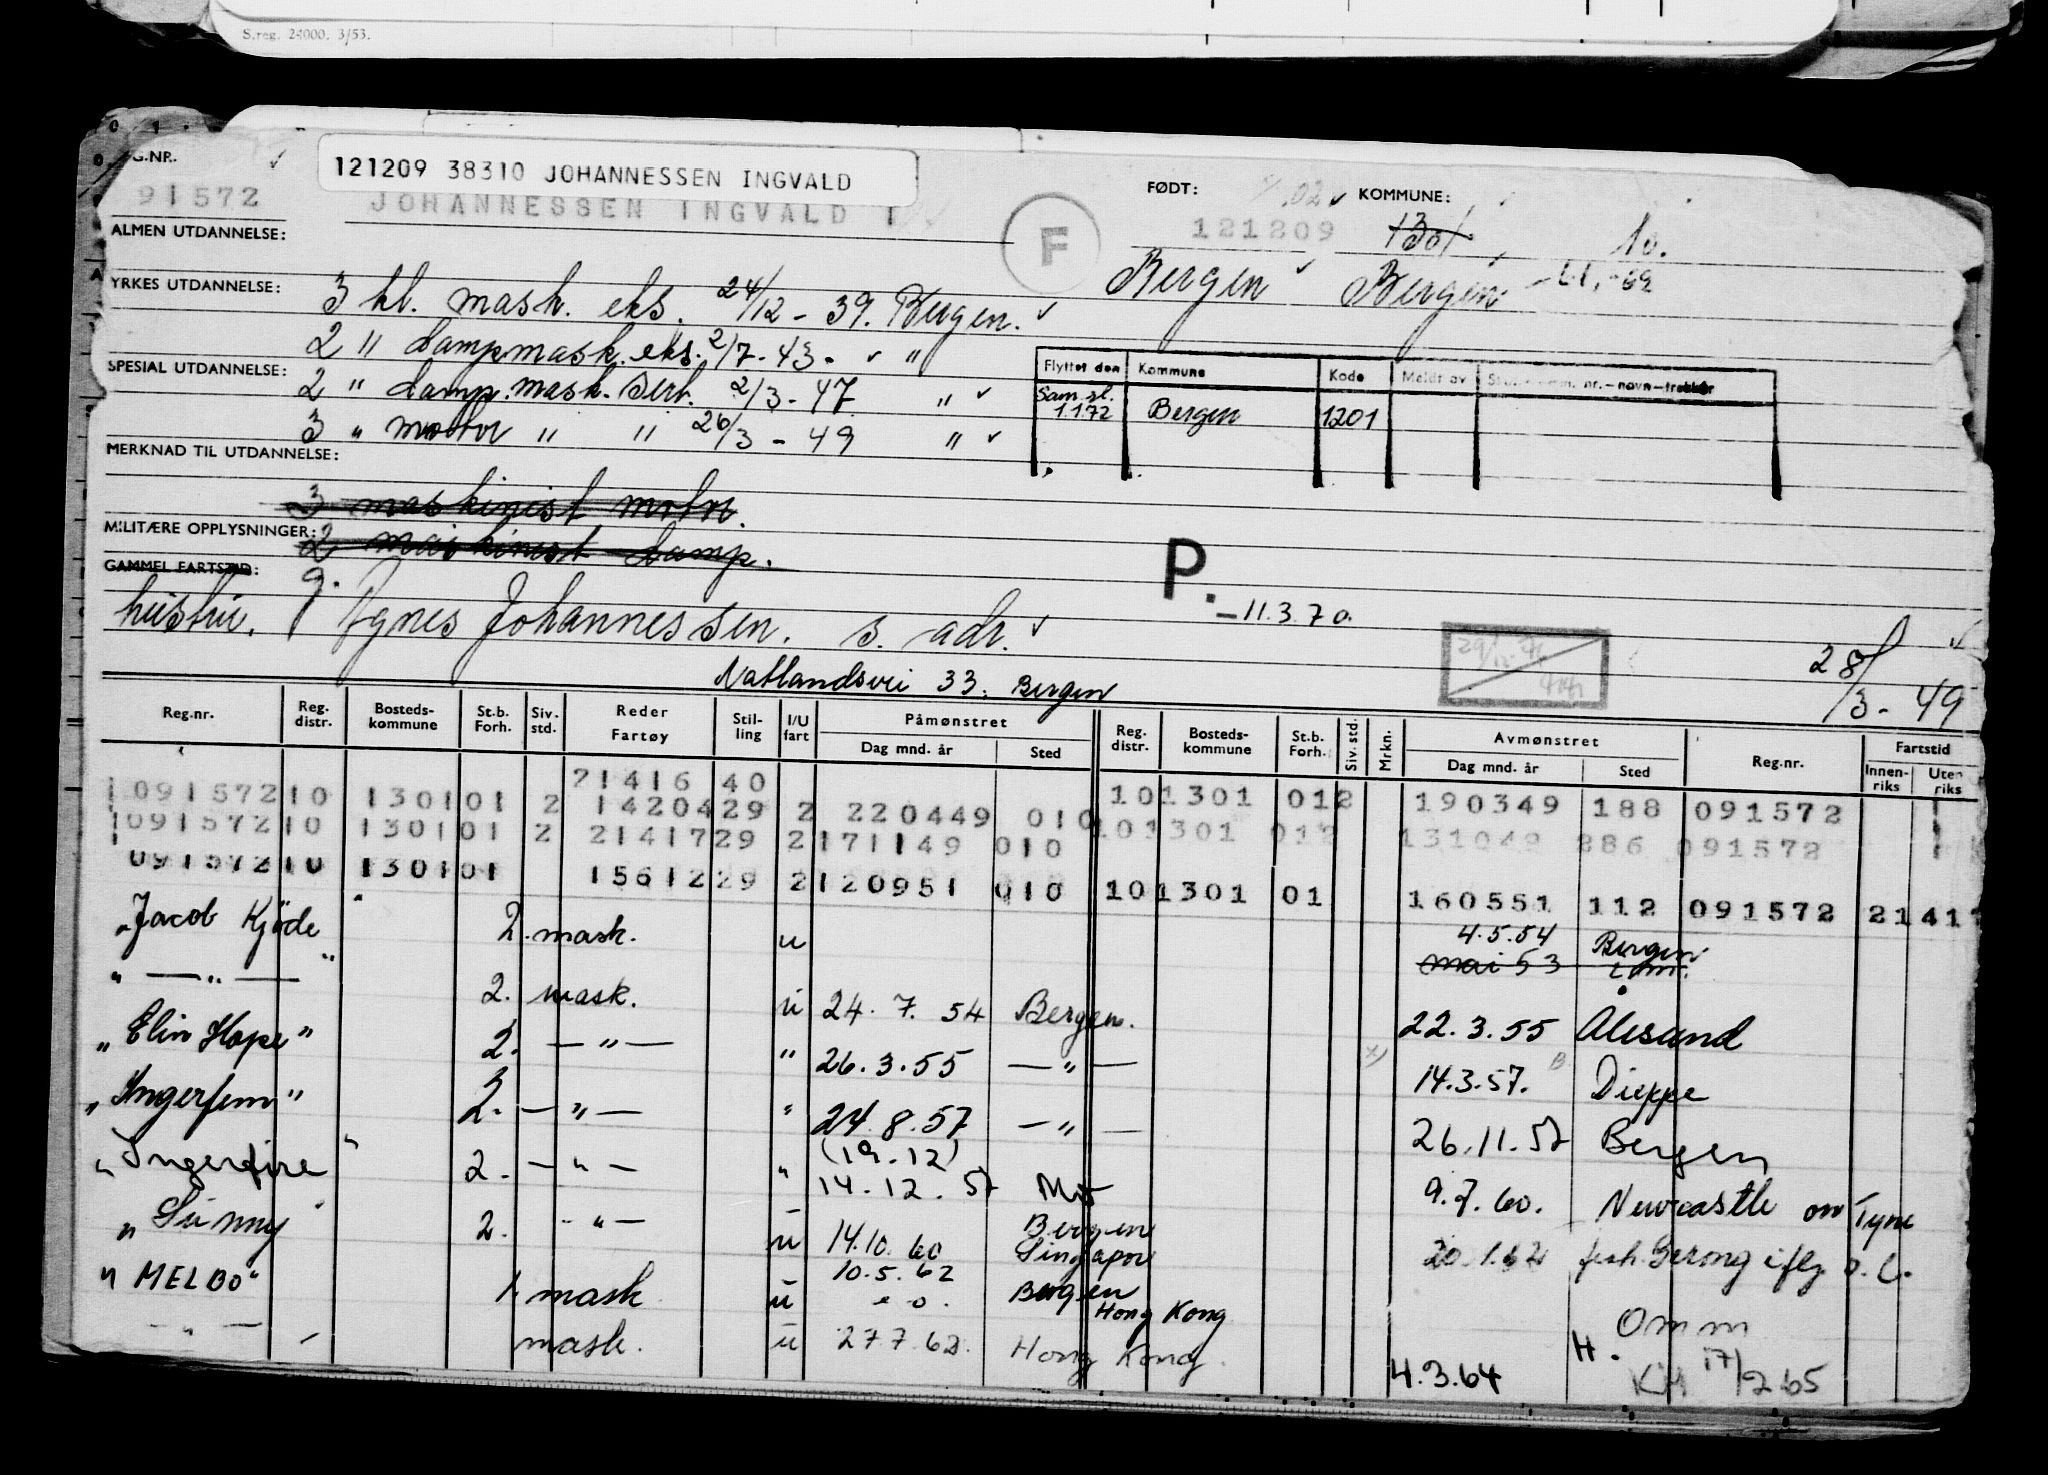 S.reg. 24000. 3/53.
G.NR.
121209 38310 JOHANNESSEN INGVALD
91572
JOHANNESSEN INGVALD I
F
FØDT:
121209
Bergen
KOMMUNE:
1301
10.
Bergen
ALMEN UTDANNELSE:
YRKES UTDANNELSE:
3 kl. mask. eks. 24/12 - 39. Bergen.
2 " dampmask. eks. 2/7 - 43 - "
SPESIAL UTDANNELSE:
2 " damp.mask. sert. 2/3 - 47 "
3 " motor " " 26/3 - 49 "
Flyttet den Kommune Kode Meldt av
Sam.sl. 1.1.72 Bergen 1201
MERKNAD TIL UTDANNELSE:
3 maskinist motor.
MILITÆRE OPPLYSNINGER:
2 maskinist damp.
GAMMEL FARTSTID:
P. - 11.3.70.
hustru. Agnes Johannessen. s. adr.
Natlandsvei 33. Bergen
28/3 - 49
Reg.nr. Reg. distr. Bosteds-kommune St.b. Forh. Siv. std. Reder Fartøy Stil-ling I/U fart Påmønstret Dag mnd. år Sted Reg. distr. Bosteds-kommune St.b. Forh. Siv. std. Mrkn. Avmønstret Dag mnd. år Sted Reg.nr. Fartstid Innen-riks Uten riks
21416 40
1091572 10 1301 01 2 14204 29 2 220449 010 10 1301 01 2 190349 188 091572
1091572 10 1301 01 2 21417 29 2 171149 010 10 1301 01 2 131049 286 091572
091572 10 1301 01 15612 29 2 120951 010 10 1301 01 160551 112 091572 21 41
"Jacob Kjöde" 2. mask. u 4.5.54 Bergen
mai 53
" — " — 2. mask. u 24. 7. 54 Bergen. 22.3.55 Ålesund
"Elin Hope" 2. — " — " 26.3.55 — " — 14.3.57. Dieppe
"Ingerfem" 2. — " — " 24.8.57 — " — 26.11.57 Bergen
"Ingerfire" 2. — " — " (19.12) 14.12.57 9.7.60. Newcastle on Tyne
"Sunny" 2. — " — u 14.10.60 Bergen
10.5.62 Singapore
"MELBO" 1. mask u Bergen Hong Kong
— " — mask. u 27 7 62. Hong Kong 4.3.64
H.
17/2 65